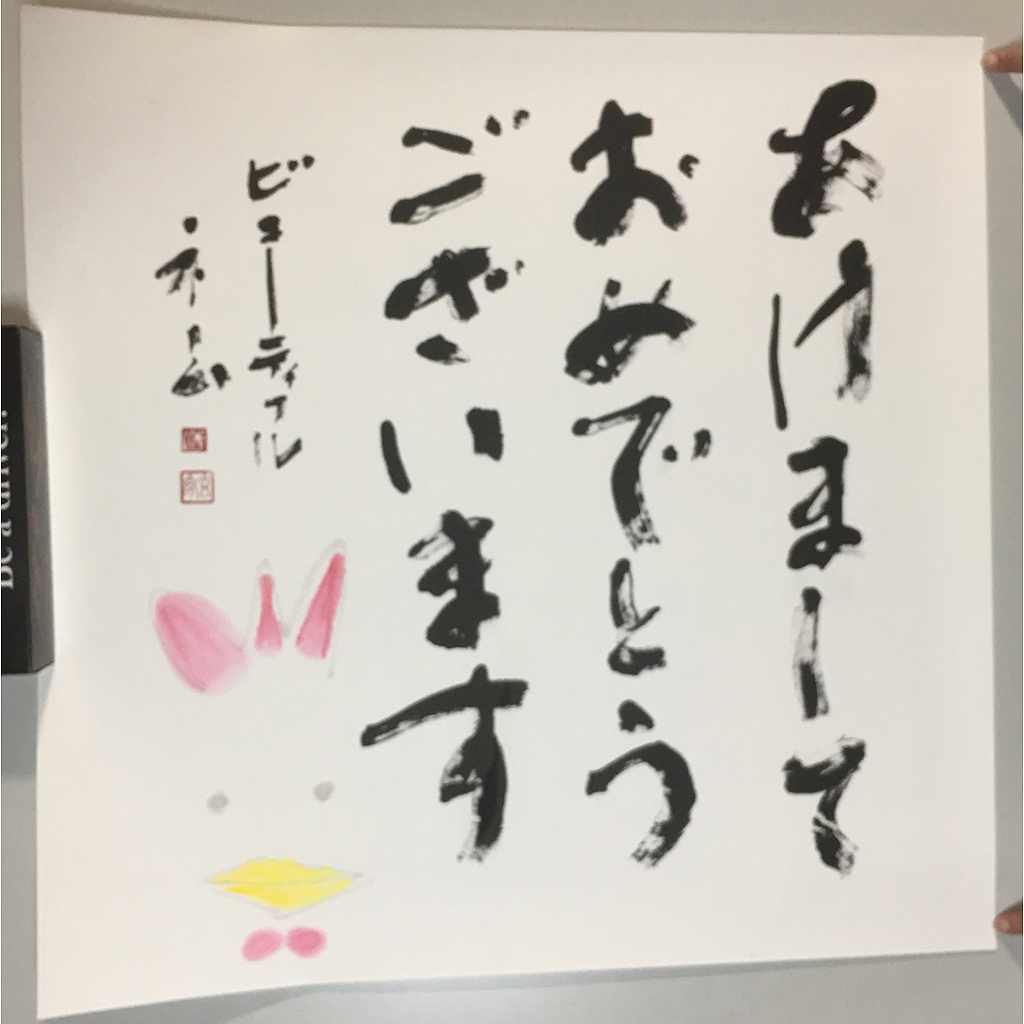 あけまして
おめでとう
ございます
ビューティフル
ネーム
Be a driver.